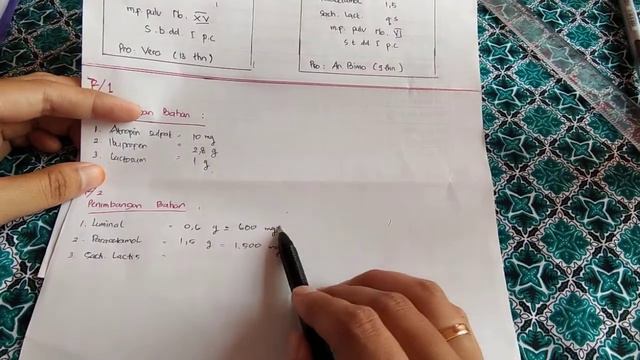 m.f. pulv No. XV
S.b.dd. I p.c
Pro: Vero (13 thn)
1,5
Sach. Lact. q.s
m.f. pulv No. VI
S.b.dd I p.c
Pro: An. Bimo (9 thn)
R/1
Bahan :
1. Atropin sulfat = 10 mg
2. Ibuprofen = 2,8 g
3. Lactosum = 1 g
Penimbangan Bahan :
1. Luminal = 0,6 g = 600 mg
2. Paracetamol = 1,5 g = 1.500
3. Sach. Lactis =